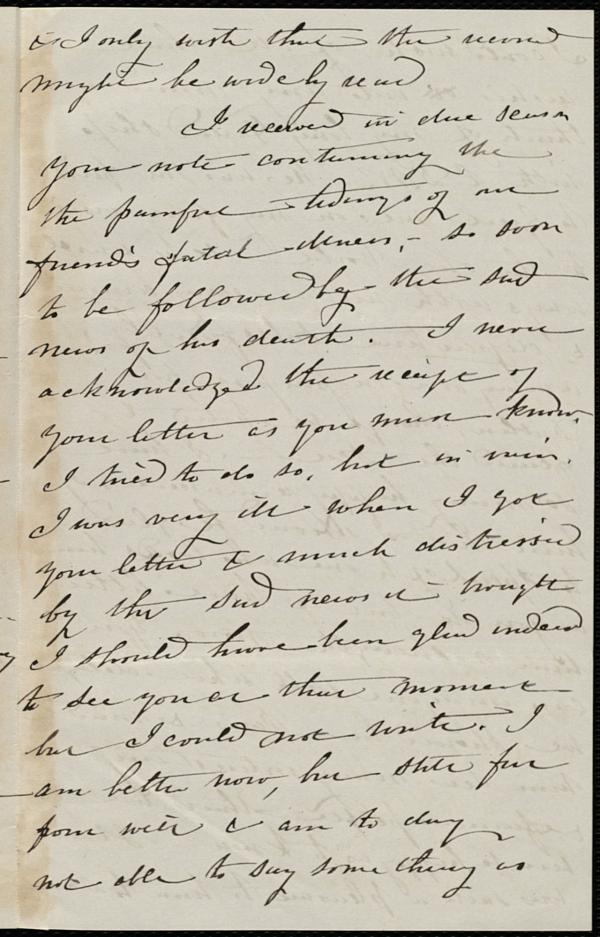 & I only wish that the record
might be widely read
I received in due season
your note containing the
the painful tidings of our
friend's fatal illness, - so soon
to be followed by the sad
news of his death. I never
acknowledged the receipt of
your letter as you must know.
I tried to do so, but in vain.
I was very ill when I got
your letter & much distressed
by the sad news it brought
I should have been glad indeed
to see you at that moment
but I could not write. I
am better now, but still far
from well & am to day
not able to say something as